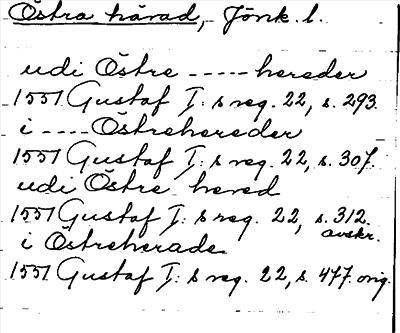 Östra härad, Jönk. l.
udi Östre ----- hereder
1551 Gustaf I: s reg. 22, s. 293.
i ---- Östrehereder
1551 Gustaf I: s reg. 22, s. 307.
udi Östre hered
1551 Gustaf I: s reg. 22, s. 312.
avskr.
i Östreherade
1551 Gustaf I: s reg. 22, s. 477. orig.